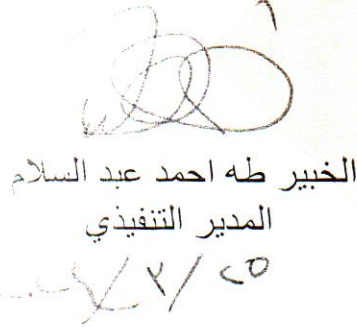 الخبير طه احمد عبد السلام
المدير التنفيذي
٢٥/٣/